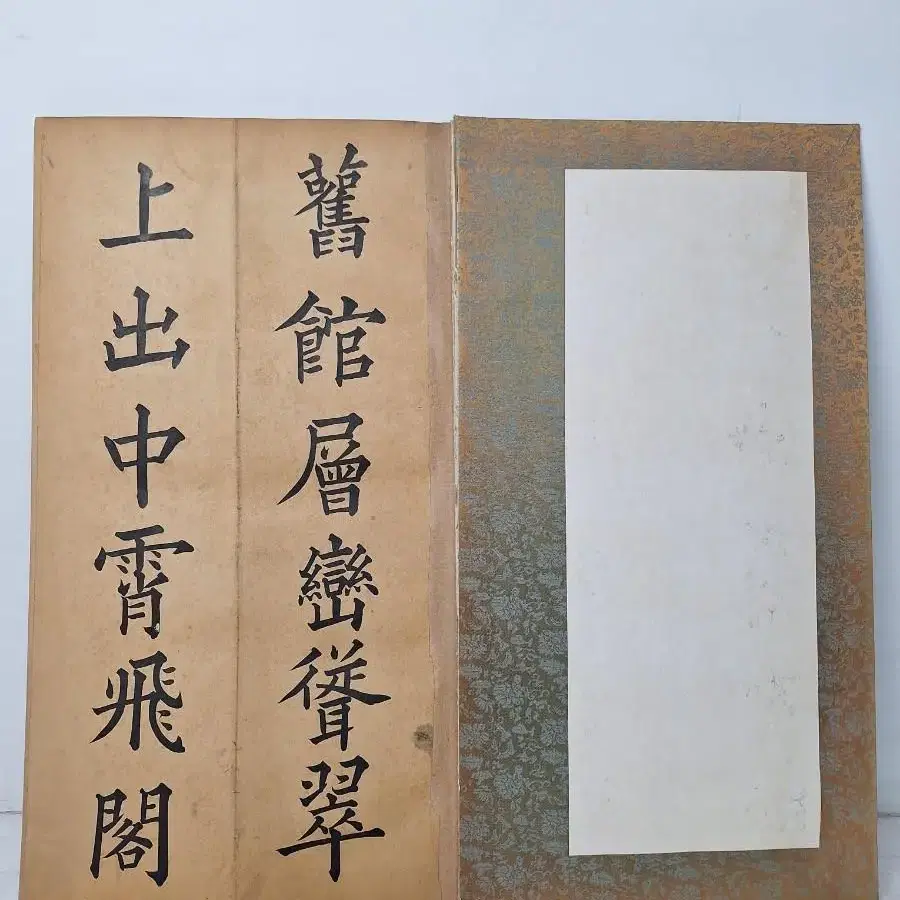 舊館層巒聳翠
上出中霄飛閣